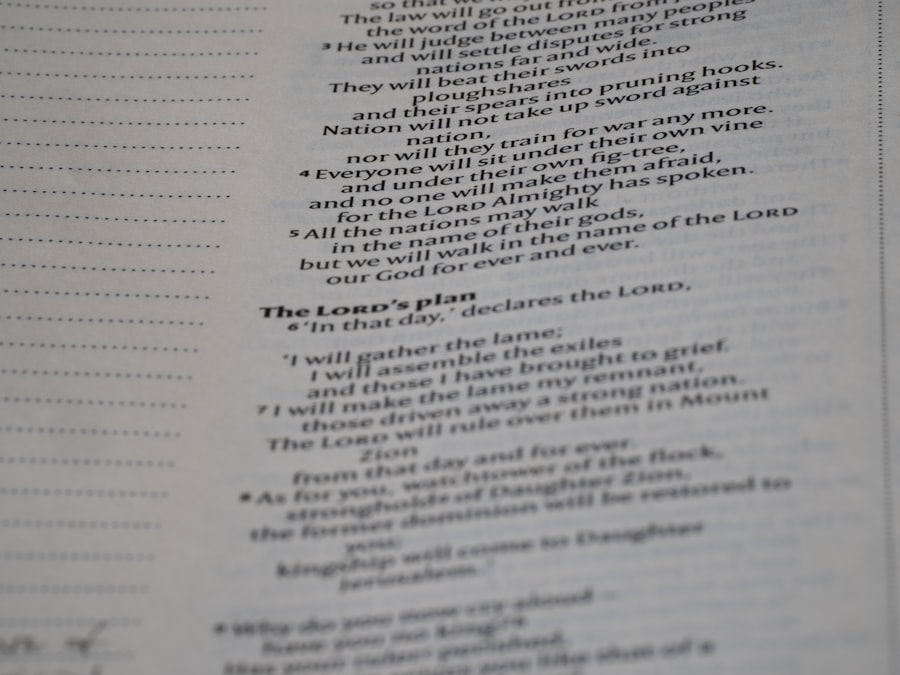 so that we
The law will go out from
the word of the LORD from
3 He will judge between many peoples
and will settle disputes for strong
nations far and wide.
They will beat their swords into
ploughshares
and their spears into pruning hooks.
Nation will not take up sword against
nation,
nor will they train for war any more.
4 Everyone will sit under their own vine
and under their own fig-tree,
and no one will make them afraid,
for the LORD Almighty has spoken.
5 All the nations may walk
in the name of their gods,
but we will walk in the name of the LORD
our God for ever and ever.
The LORD's plan
6 'In that day,' declares the LORD,
'I will gather the lame;
I will assemble the exiles
and those I have brought to grief.
7 I will make the lame my remnant,
those driven away a strong nation.
The LORD will rule over them in Mount
Zion
from that day and for ever.
8 As for you, watchtower of the flock,
stronghold of Daughter Zion,
the former dominion will be restored to
you;
kingship will come to Daughter
Jerusalem.'
9 Why do you now cry aloud –
have you no king